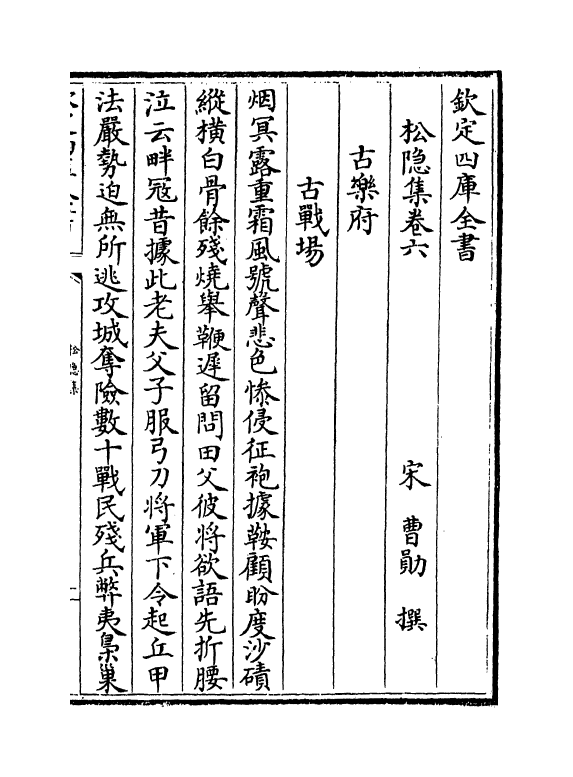 欽定四庫全書
松隐集卷六
宋 曹勛 撰
古樂府
古戰場
烟冥露重霜風號聲悲色慘侵征袍據鞍顧盼度沙磧
縱橫白骨餘殘燒舉鞭遲留問田父彼將欲語先折腰
泣云畔冦昔據此老夫父子服弓刀将軍下令起丘甲
法嚴勢迫無所逃攻城奪險數十戰民殘兵弊夷梟巢
松隐集